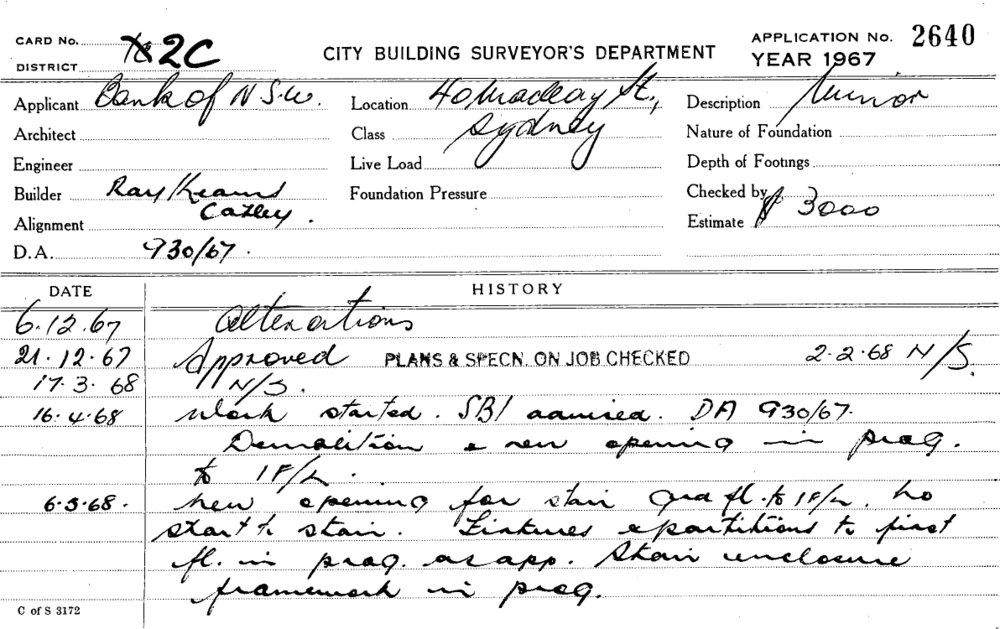 CARD No.
DISTRICT 2C
CITY BUILDING SURVEYOR'S DEPARTMENT
APPLICATION No. 2640
YEAR 1967
Applicant Bank of N S.W.
Location 40 Macleay St.,
Sydney
Description Minor
Architect
Class
Nature of Foundation
Engineer
Live Load
Depth of Footings
Builder Ray Kearns
Foundation Pressure
Checked by
Alignment
Estimate $ 3000
D.A. 930/67.
DATE
HISTORY
6.12.67 Alterations
21.12.67 Approved PLANS & SPECN. ON JOB CHECKED 2.2.68 N/S.
17.3.68 N/S.
16.4.68 Work started. SBI advised. DA 930/67.
Demolition & new opening in prog.
to 1F/L.
6.5.68. New opening for stair Grd fl. to 1F/L. No
start to stair. Fixtures & partitions to first
fl. in prog. as app. Stair enclosure
framework in prog.
C of S 3172